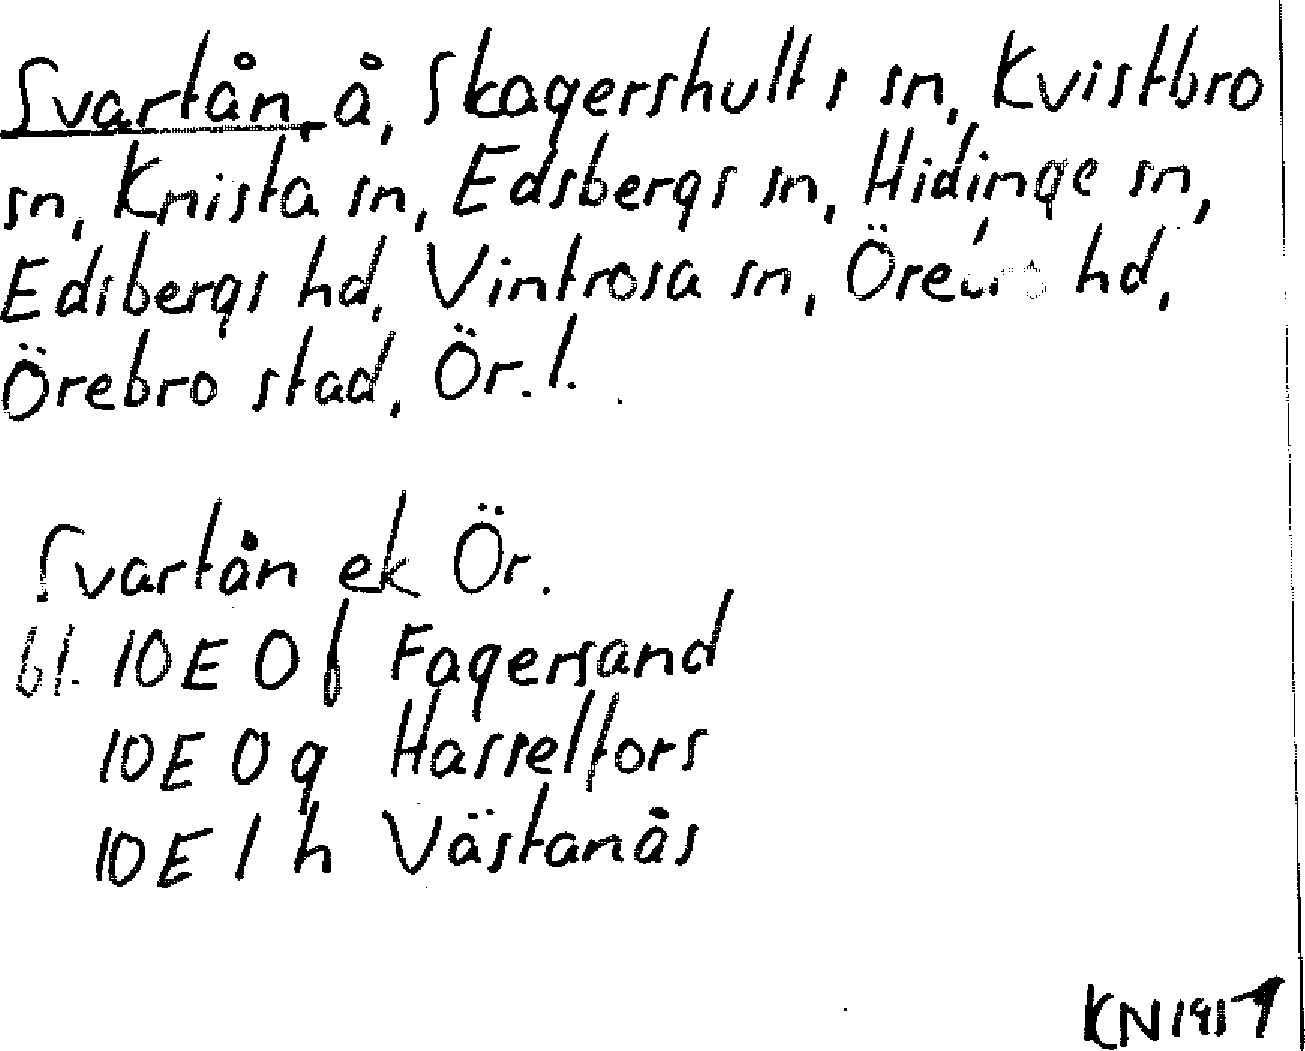 Svartån, å, Skagershults sn, Kvistbro
sn, Knista sn, Edsbergs sn, Hidinge sn,
Edsbergs hd, Vintrosa sn, Örebro hd,
Örebro stad, Ör. l.
Svartån ek Ör.
bl. 10E 0 f Fagersand
10E 0 g Hasselfors
10E 1 h Västanås